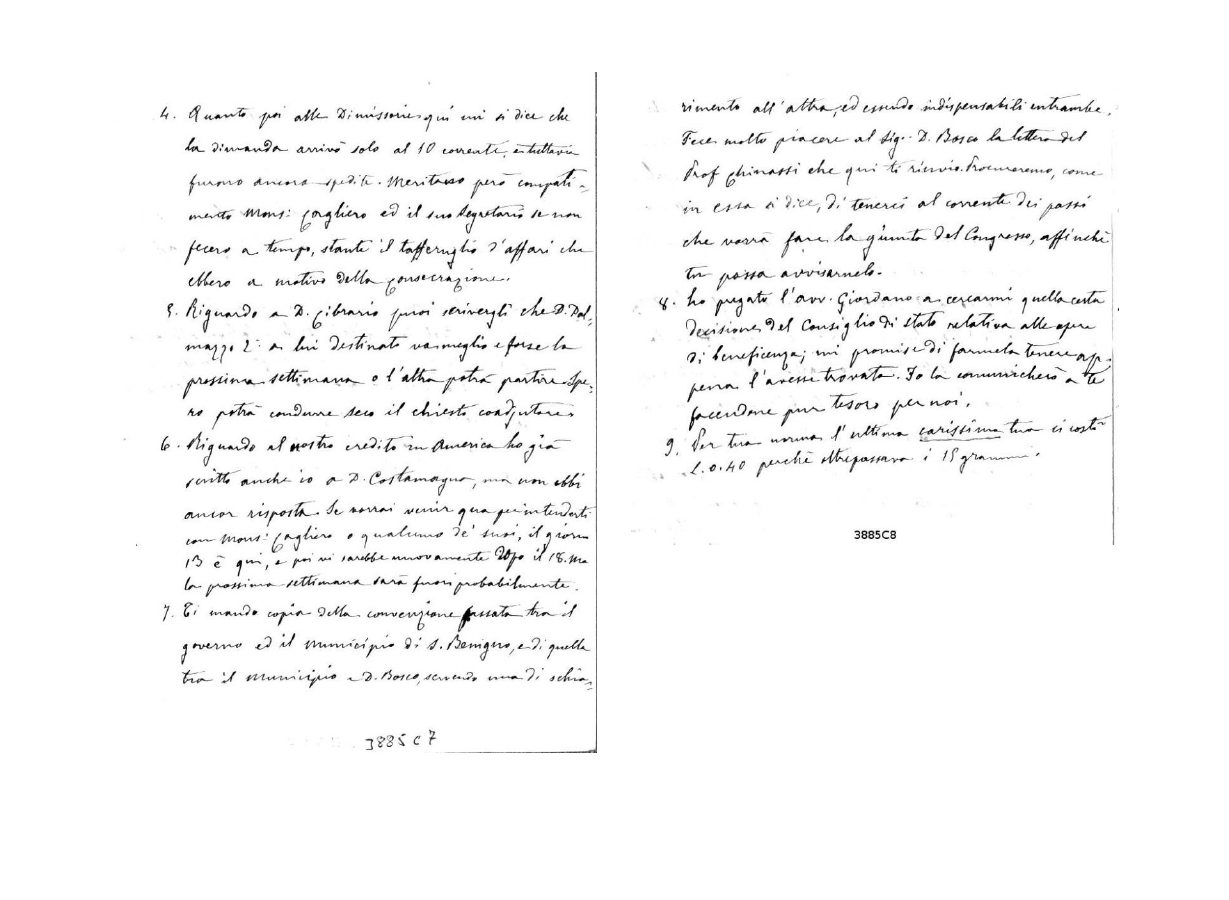 4. Quanto poi alle Dimissorie qui mi si dice che
la dimanda arrivò solo al 10 corrente, e tuttavia
furono ancora spedite. Meritano però compati-
mento Mons: Cagliero ed il suo Segretario se non
fecero a tempo, stante il tafferuglio d'affari che
ebbero a motivo della Consecrazione.
5. Riguardo a D. Cibrario puoi scrivergli che D. Dal-
mazzo 2° a lui destinato va meglio e forse la
prossima settimana o l'altra potrà partire. Spe-
ro potrà condurre seco il chiesto coadjutore.
6. Riguardo al nostro credito in America ho già
scritto anche io a D. Costamagna, ma non ebbi
ancor risposta. Se vorrai venir qua per intenderti
con Mons: Cagliero o qualcuno de' suoi, il giorno
13 è qui, e poi vi sarebbe nuovamente dopo il 18. Ma
la prossima settimana sarà fuori probabilmente.
7. Ti mando copia della convenzione passata tra il
governo ed il Municipio di S. Benigno, e di quella
tra il Municipio e D. Bosco, servendo una di schia-
3885 C 7
rimento all'altra, ed essendo indispensabili entrambe.
Fece molto piacere al Sig. D. Bosco la lettera del
Prof Ghinassi che qui ti rinvio. Procureremo, come
in essa si dice, di tenerci al corrente dei passi
che vorrà fare la giunta del Congresso, affinché
tu possa avvisarnelo.
8. Ho pregato l'avv. Giordano a cercarmi quella certa
decisione del Consiglio di stato relativa alle opere
di beneficenza; mi promise di farmela tenere ap-
pena l'avesse trovata. Io la comunicherò a te
facendone pur tesoro per noi.
9. Per tua norma l'ultima carissima tua ci costò
L. 0.40 perché oltrepassava i 15 grammi.
3885C8